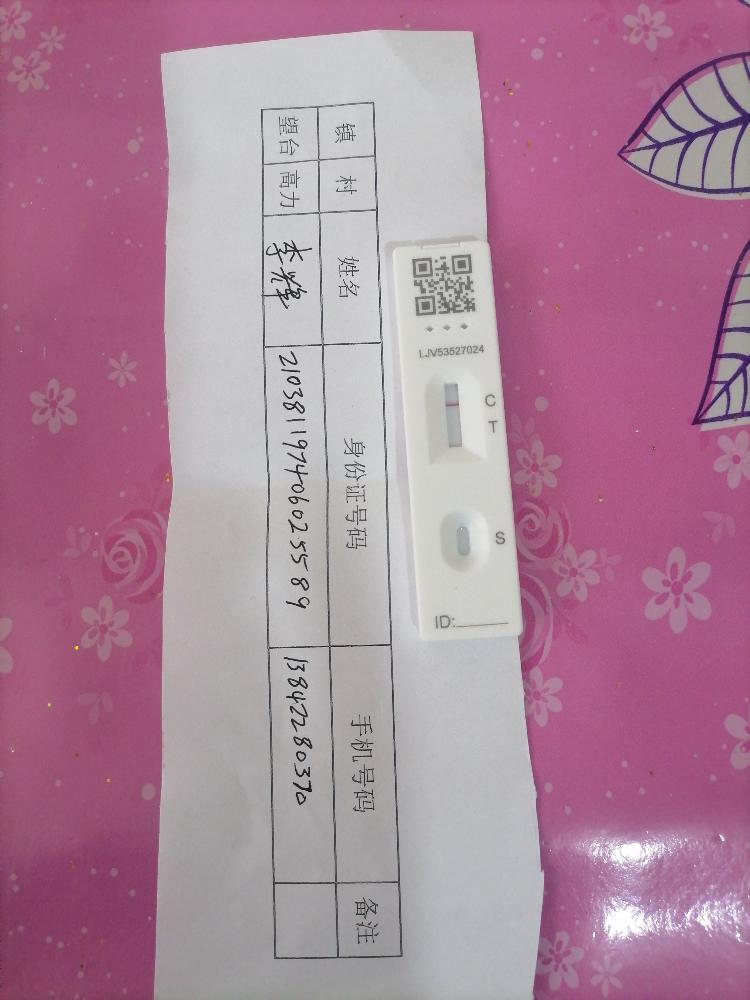 镇 村 姓名 身份证号码 手机号码 备注
望台 高力 李辉 210381197406025589 13842280370
LJV53527024
C
T
S
ID: